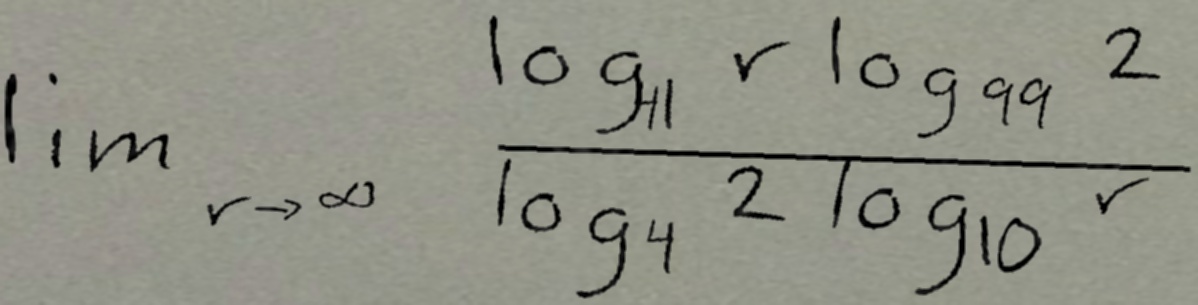 lim r→∞ log₁₁ r log₉₉ 2 / log₄ 2 log₁₀ r